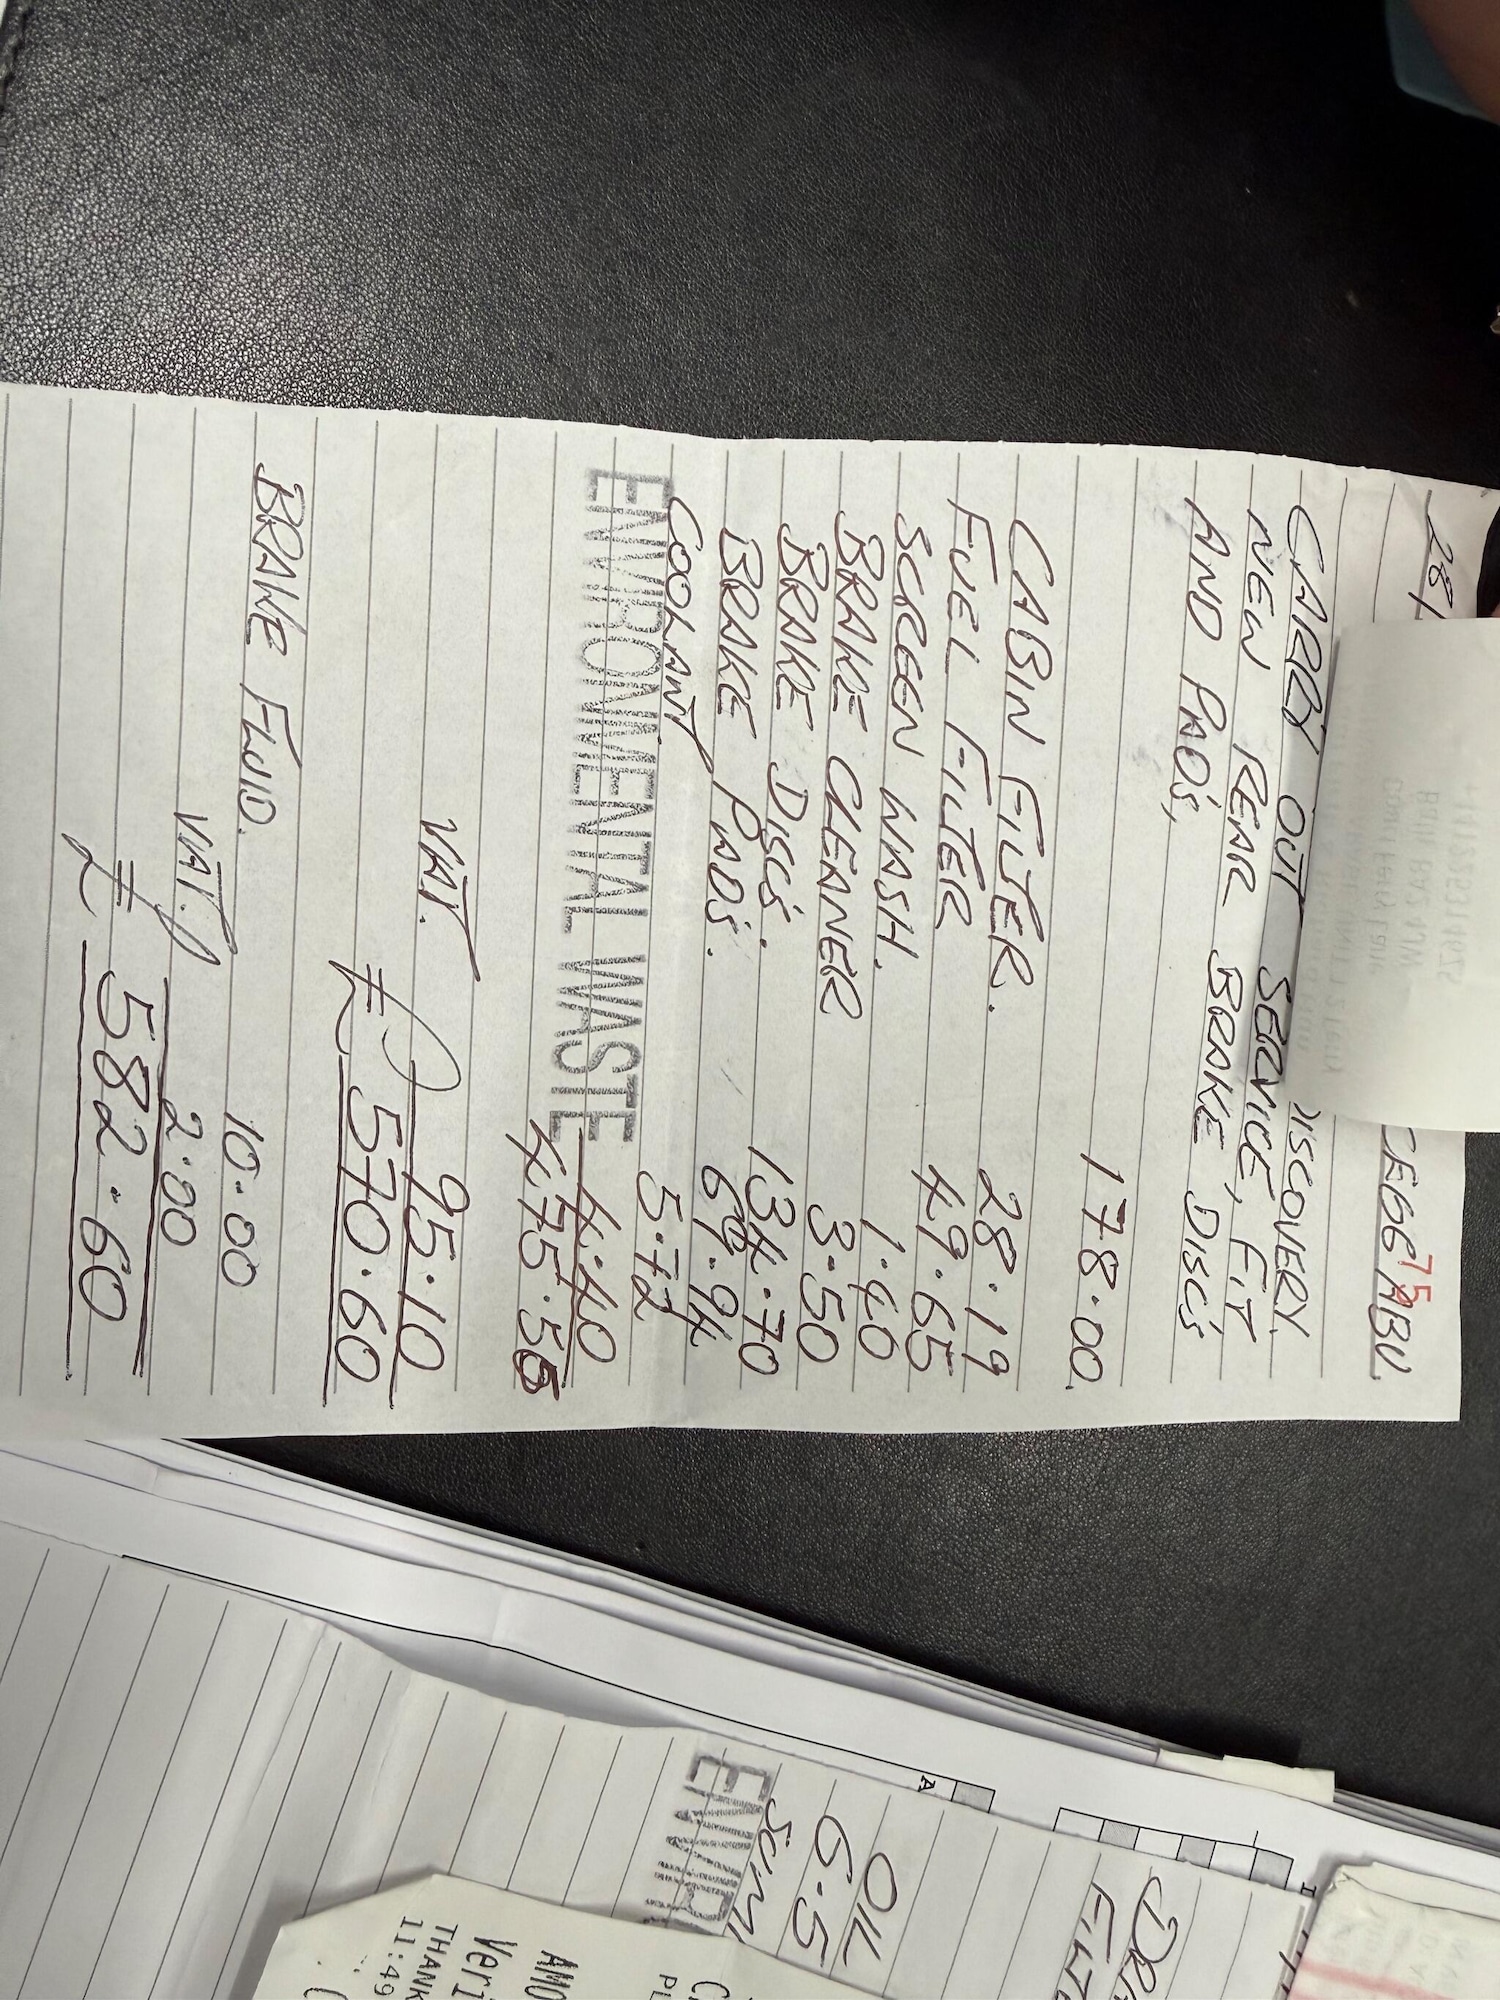 28/
CE66 ABU
75
CARRY OUT SERVICE, FIT DISCOVERY.
NEW REAR BRAKE DISC'S
AND PAD'S,
178.00.
CABIN FILTER. 28.19
FUEL FILTER 49.65
SCREEN WASH. 1.40
BRAKE CLEANER 3.50
BRAKE DISC'S. 134.70
BRAKE PAD'S. 69.94
COOLANT 5.72
ENVIRONMENTAL WASTE 4.40
475.50
VAT. 95.10
£ 570.60
BRAKE FLUID. 10.00
VAT. 2.00
£ 582.60
OIL
6.5
ENVIR
AMO
Veri
THANK
11:49